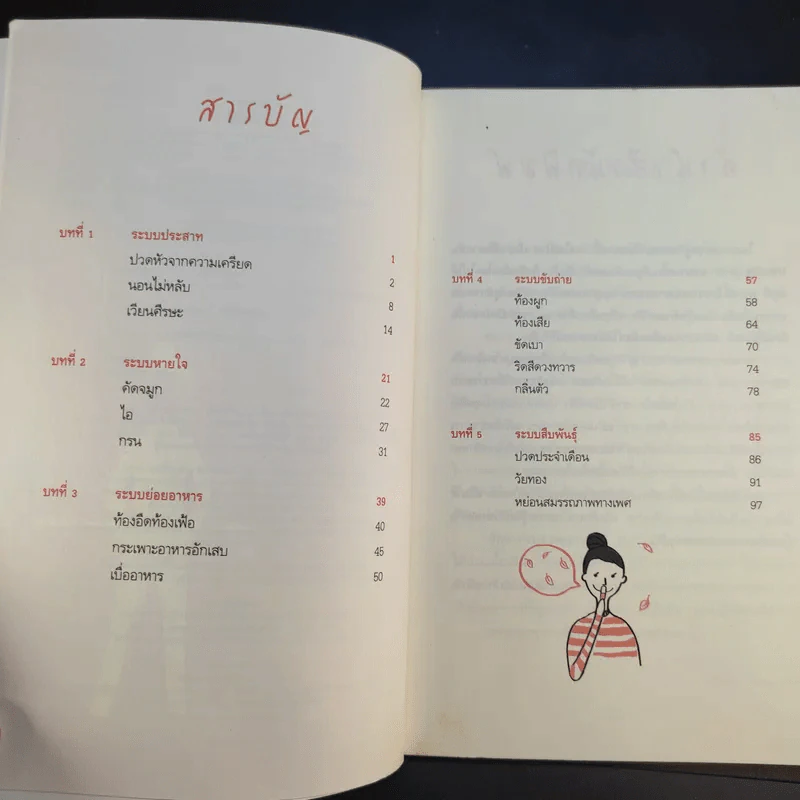 สารบัญ
บทที่ 1 ระบบประสาท 1
ปวดหัวจากความเครียด 2
นอนไม่หลับ 8
เวียนศีรษะ 14
บทที่ 2 ระบบหายใจ 21
คัดจมูก 22
ไอ 27
กรน 31
บทที่ 3 ระบบย่อยอาหาร 39
ท้องอืดท้องเฟ้อ 40
กระเพาะอาหารอักเสบ 45
เบื่ออาหาร 50
บทที่ 4 ระบบขับถ่าย 57
ท้องผูก 58
ท้องเสีย 64
ขัดเบา 70
ริดสีดวงทวาร 74
กลิ่นตัว 78
บทที่ 5 ระบบสืบพันธุ์ 85
ปวดประจำเดือน 86
วัยทอง 91
หย่อนสมรรถภาพทางเพศ 97